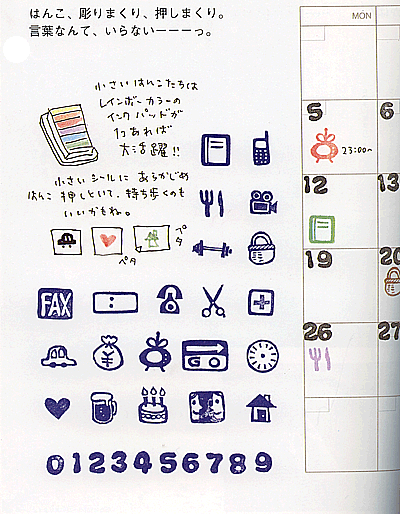 はんこ、彫りまくり、押しまくり。
言葉なんて、いらないーーーっ。
小さいはんこたちは
レインボーカラーの
インクパッドが
1つあれば
大活躍!!
小さいシールに あらかじめ
はんこ 押しといて、持ち歩くのも
いいかもね。
ペタ
ペタ
FAX
GO
0123456789
MON
5
6
23:00~
12
13
19
20
26
27